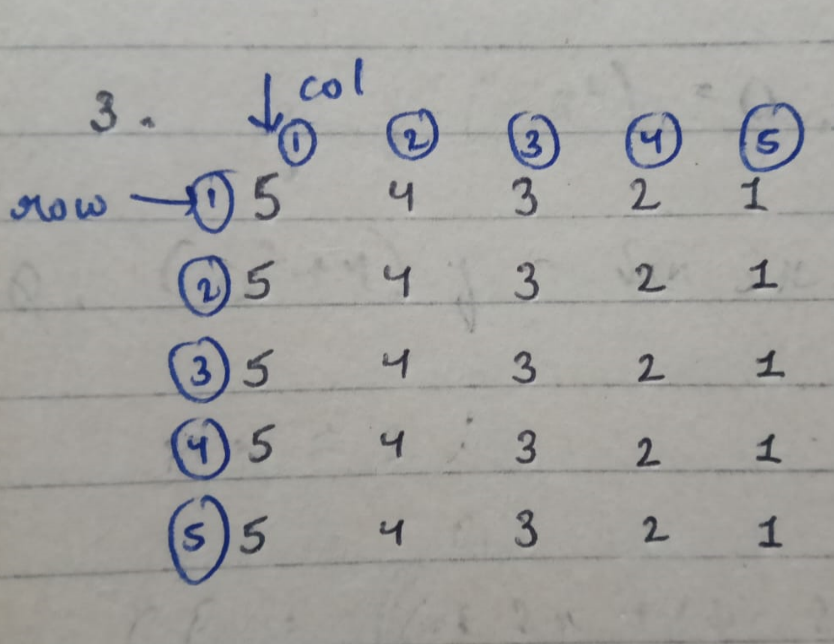 3. ↓ col
① ② ③ ④ ⑤
row → ① 5 4 3 2 1
② 5 4 3 2 1
③ 5 4 3 2 1
④ 5 4 3 2 1
⑤ 5 4 3 2 1